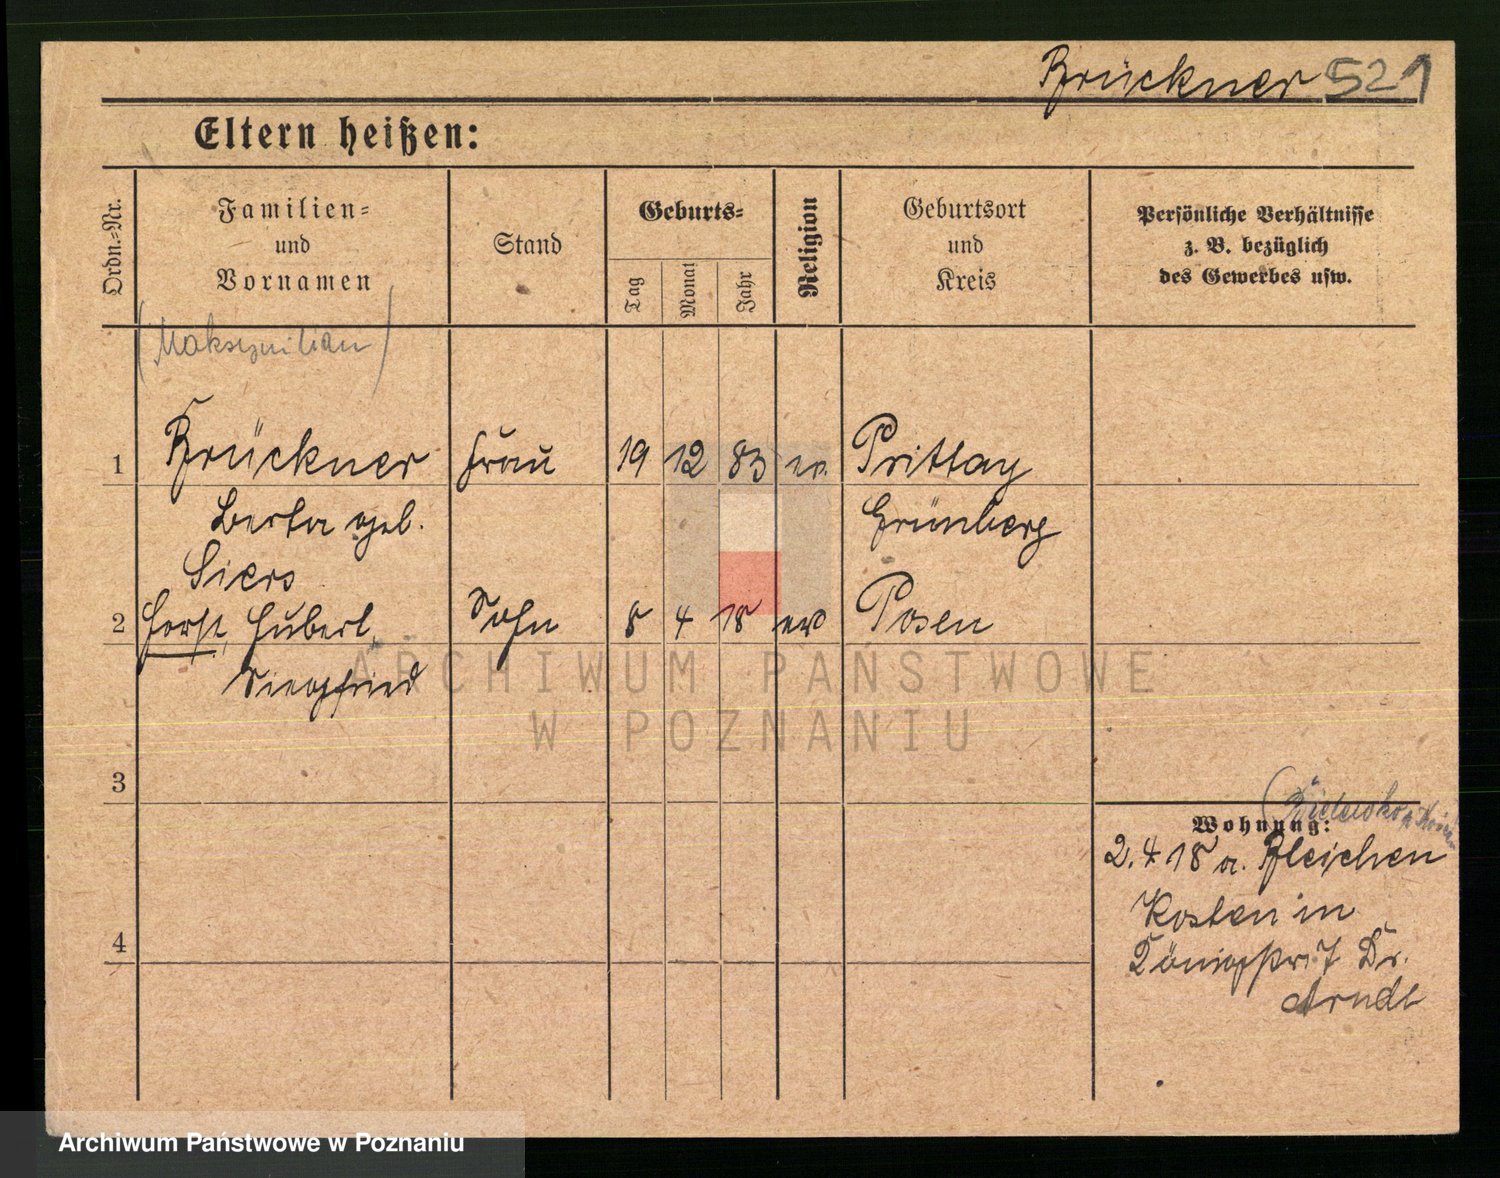 Brückner 521
Eltern heißen:
Ordn.=Nr.
Familien=
und
Vornamen
Stand
Geburts=
Tag
Monat
Jahr
Religion
Geburtsort
und
Kreis
Persönliche Verhältnisse
z. B. bezüglich
des Gewerbes usw.
(Maksymilian)
1 Brückner Frau 19 12 83 ev. Prittag
Berta geb. Grünberg
Siers
2 Horst, Hubert Sohn 8 4 18 ev Posen
Siegfried
3
Wohnung:
2. 4 18 a. Pleschen
Kosten in
4
Königspl. 7 Dr.
Arndt
ARCHIWUM PAŃSTWOWE
W POZNANIU
Archiwum Państwowe w Poznaniu